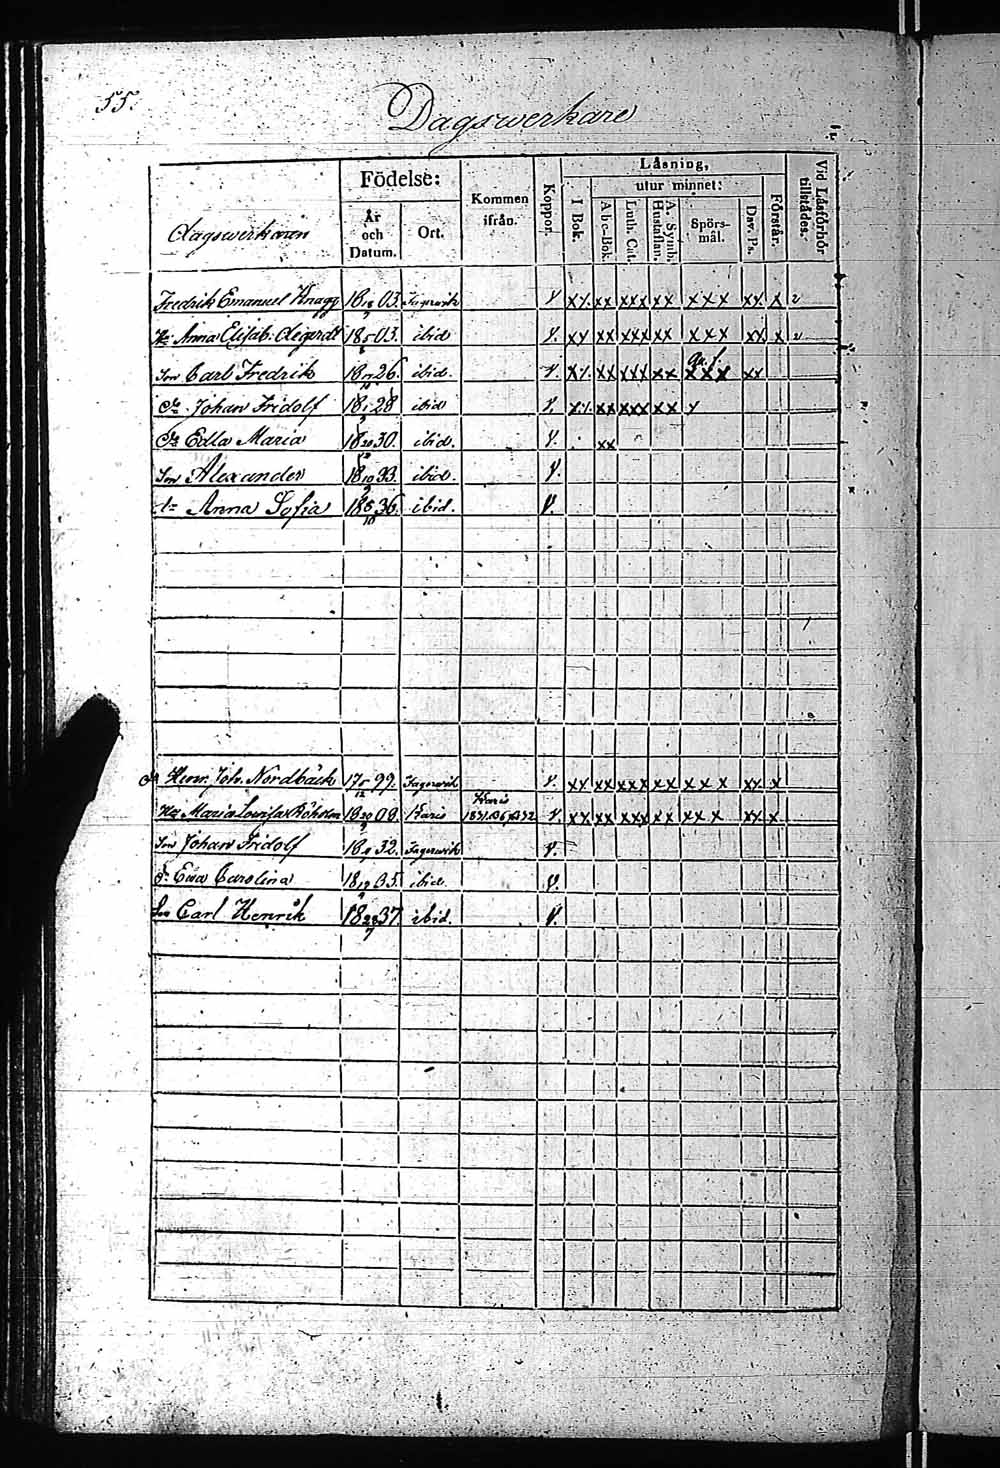 55.
Dagswerkare
Dagswerkaren
Födelse:
År och Datum.
Ort.
Kommen ifrån.
Koppor.
Läsning,
I Bok.
utur minnet:
A b c-Bok.
Luth. Cat.
A. Symb. Hustaflan.
Spörs-mål.
Dav. Ps.
Förstår.
Vid Läsförhör tillstädes.
Fredrik Emanuel Knagg 18 18 03. Fagerwik V. X% xx xxx xx xxx xx. x 2
Hu Anna Elisab. 18 5 03. ibid V. xx xx xxx xx xxx xx. x 2
Son Carl Fredrik 18 26. ibid. V. X% xx xxx xx xxx xx
So Johan Fridolf 18 28 ibid V. X% xx xxx xx
Dr Edla Maria 18 20 30. ibid. V. xx
Son Alexander 18 10 33. ibid. V.
Anna Sofia 18 5/10 36. ibid. V.
Henr. Joh. Nordbäck 17 5/12 99. Fagerwik V. xx xx xxx xx xxx xx. x
Karis
Hu Maria Lovisa 18 20 08. Karis 1831 1832 V. xx xx xxx xx xx x xx. x
Son Johan Fridolf 18 9 32. Fagerwik V.
Dr Ewa Carolina 18 19 35. ibid. V.
Son Carl Henrik 18 28/7 37. ibid. V.